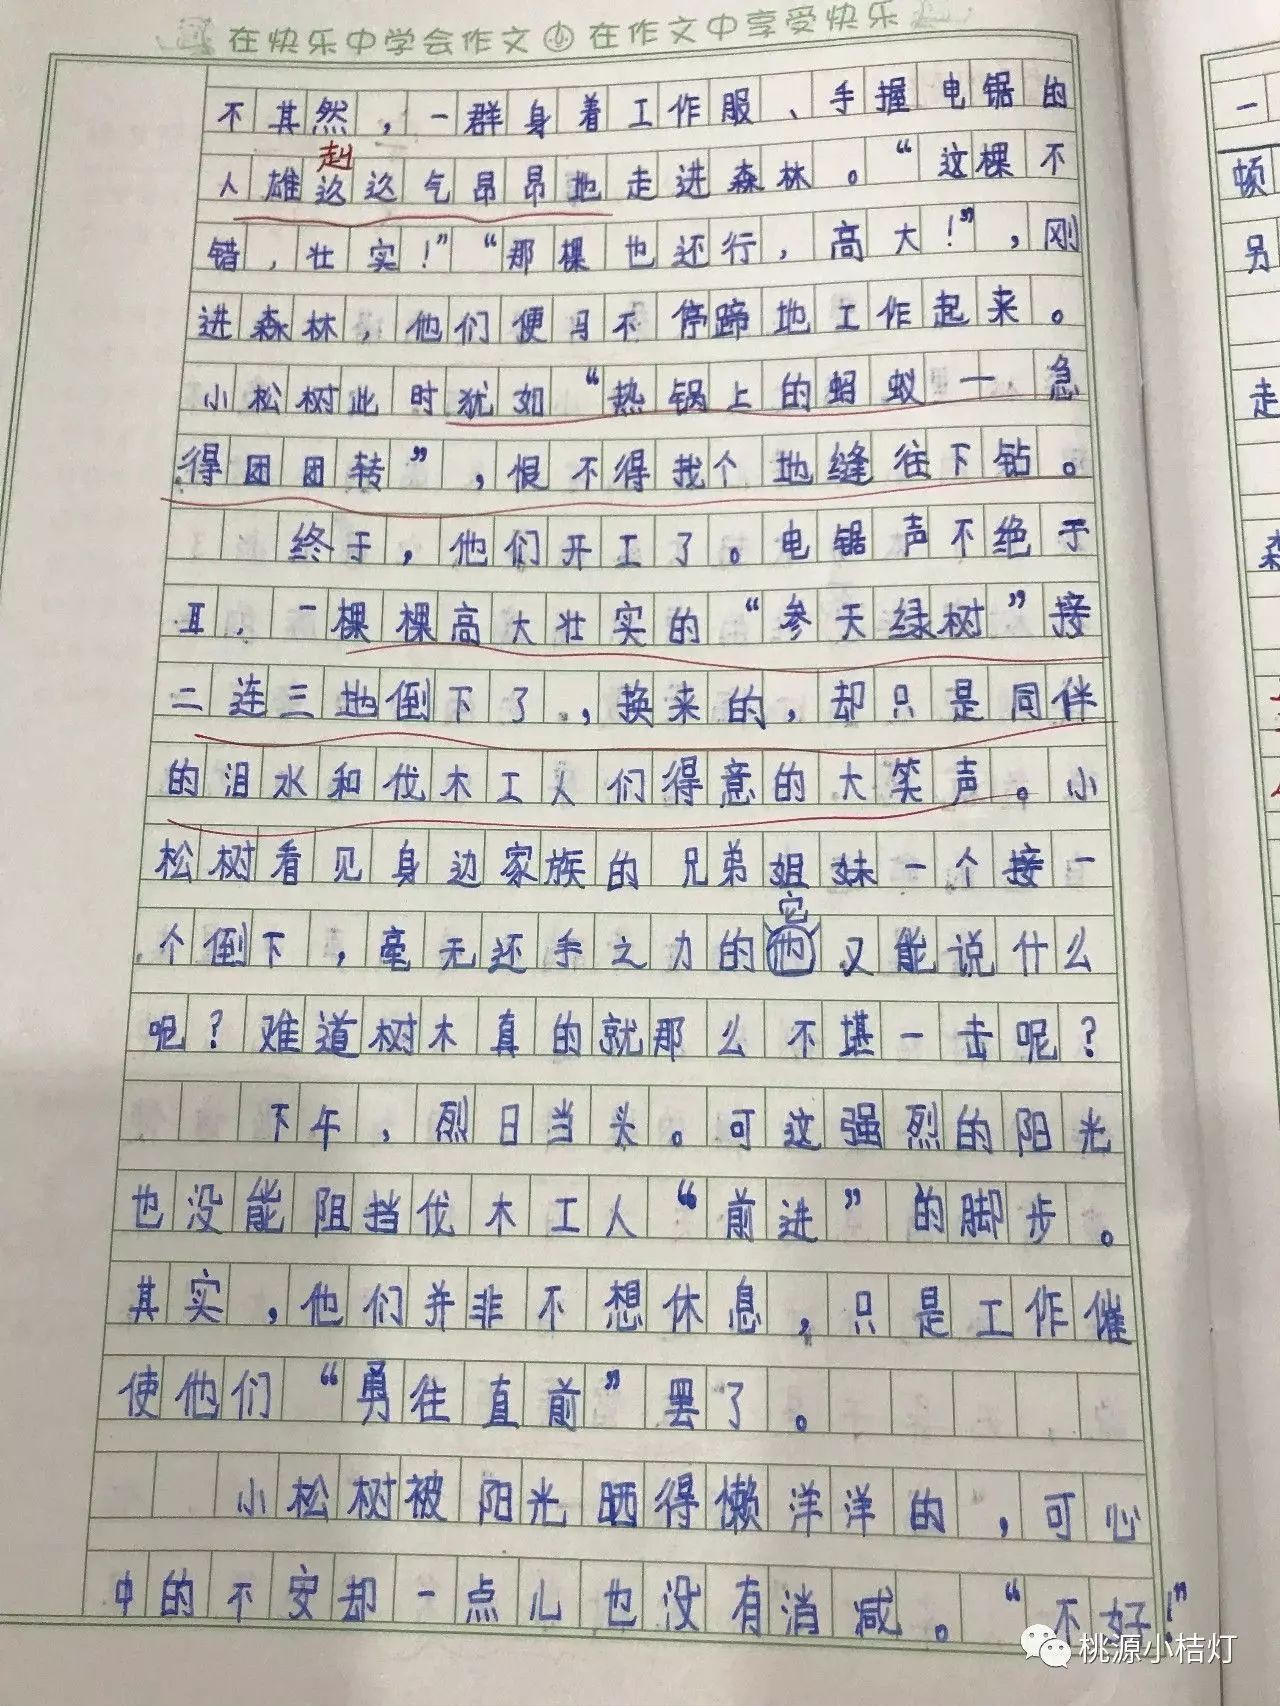 在快乐中学会作文 在作文中享受快乐
不其然，一群身着工作服、手握电锯的
赳
人雄赳赳气昂昂地走进森林。“这棵不
错，壮实！”“那棵也还行，高大！”，刚
进森林，他们便马不停蹄地工作起来。
小松树此时犹如“热锅上的蚂蚁——急
得团团转”，恨不得找个地缝往下钻。
终于，他们开工了。电锯声不绝于
耳，一棵棵高大壮实的“参天绿树”接
二连三地倒下了，换来的，却只是同伴
的泪水和伐木工人们得意的大笑声。小
松树看见身边家族的兄弟姐妹一个接一
它
个倒下，毫无还手之力的他又能说什么
呢？难道树木真的就那么不堪一击呢？
下午，烈日当头。可这强烈的阳光
也没能阻挡伐木工人“前进”的脚步。
其实，他们并非不想休息，只是工作催
使他们“勇往直前”罢了。
小松树被阳光晒得懒洋洋的，可心
中的不安却一点儿也没有消减。“不好！”
一
顿
另
走
桃源小桔灯